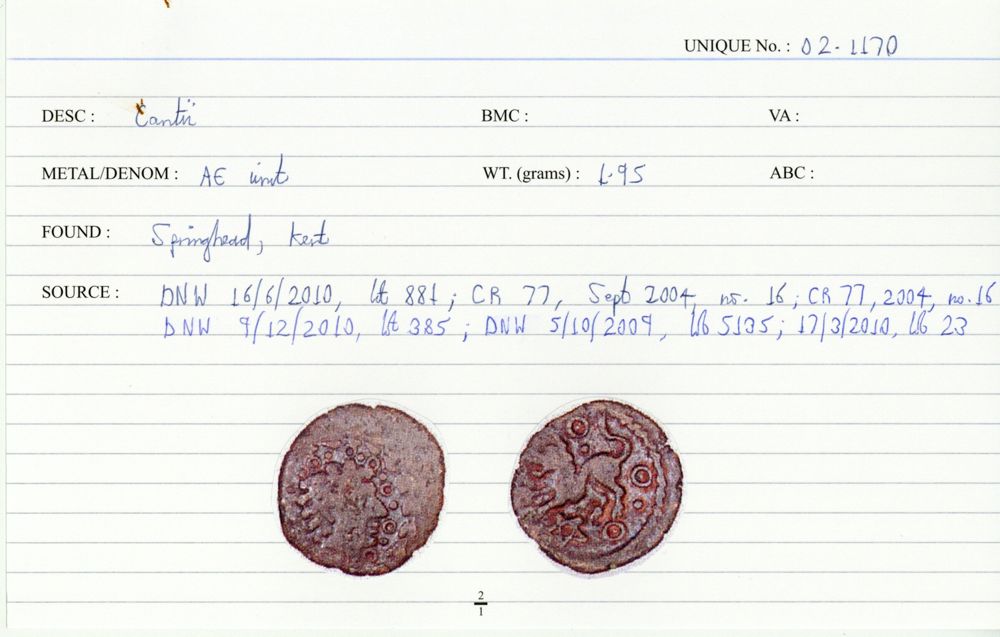 UNIQUE No. : 02-1170
DESC : Cantii BMC : VA :
METAL/DENOM : AE unit WT. (grams) : 1.95 ABC :
FOUND : Springhead, Kent
SOURCE : DNW 16/6/2010, lot 881 ; CR 77, Sept 2004, no. 16 ; CR 77, 2004, no.16
DNW 9/12/2010, lot 385 ; DNW 5/10/2009, lot 5135 ; 17/3/2010, lot 23
2
1